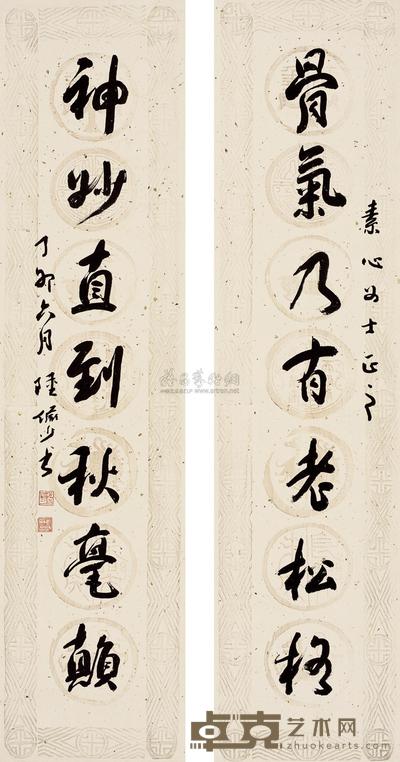 骨氣乃有老松格
素心女士正之
神妙直到秋毫顛
丁卯六月 陸儼少書
卓克艺术网
www.zhuokearts.com